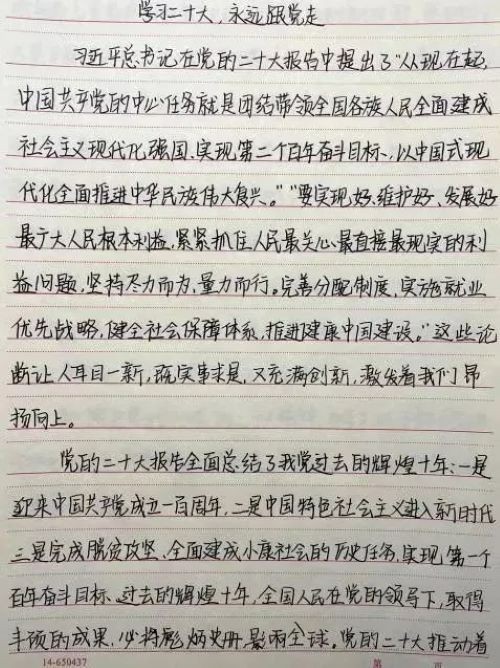 学习二十大，永远跟党走
习近平总书记在党的二十大报告中提出了“从现在起，
中国共产党的中心任务就是团结带领全国各族人民全面建成
社会主义现代化强国、实现第二个百年奋斗目标，以中国式现
代化全面推进中华民族伟大复兴。”“要实现好、维护好、发展好
最广大人民根本利益，紧紧抓住人民最关心最直接最现实的利
益问题，坚持尽力而为、量力而行。完善分配制度，实施就业
优先战略，健全社会保障体系，推进健康中国建设。”这些论
断让人耳目一新，既实事求是，又充满创新，激发着我们昂
扬向上。
党的二十大报告全面总结了我党过去的辉煌十年：一是
迎来中国共产党成立一百周年，二是中国特色社会主义进入新时代
三是完成脱贫攻坚、全面建成小康社会的历史任务，实现第一个
百年奋斗目标。过去的辉煌十年，全国人民在党的领导下，取得
丰硕的成果，必将彪炳史册，影响全球。党的二十大推动着
14-650437
第 页